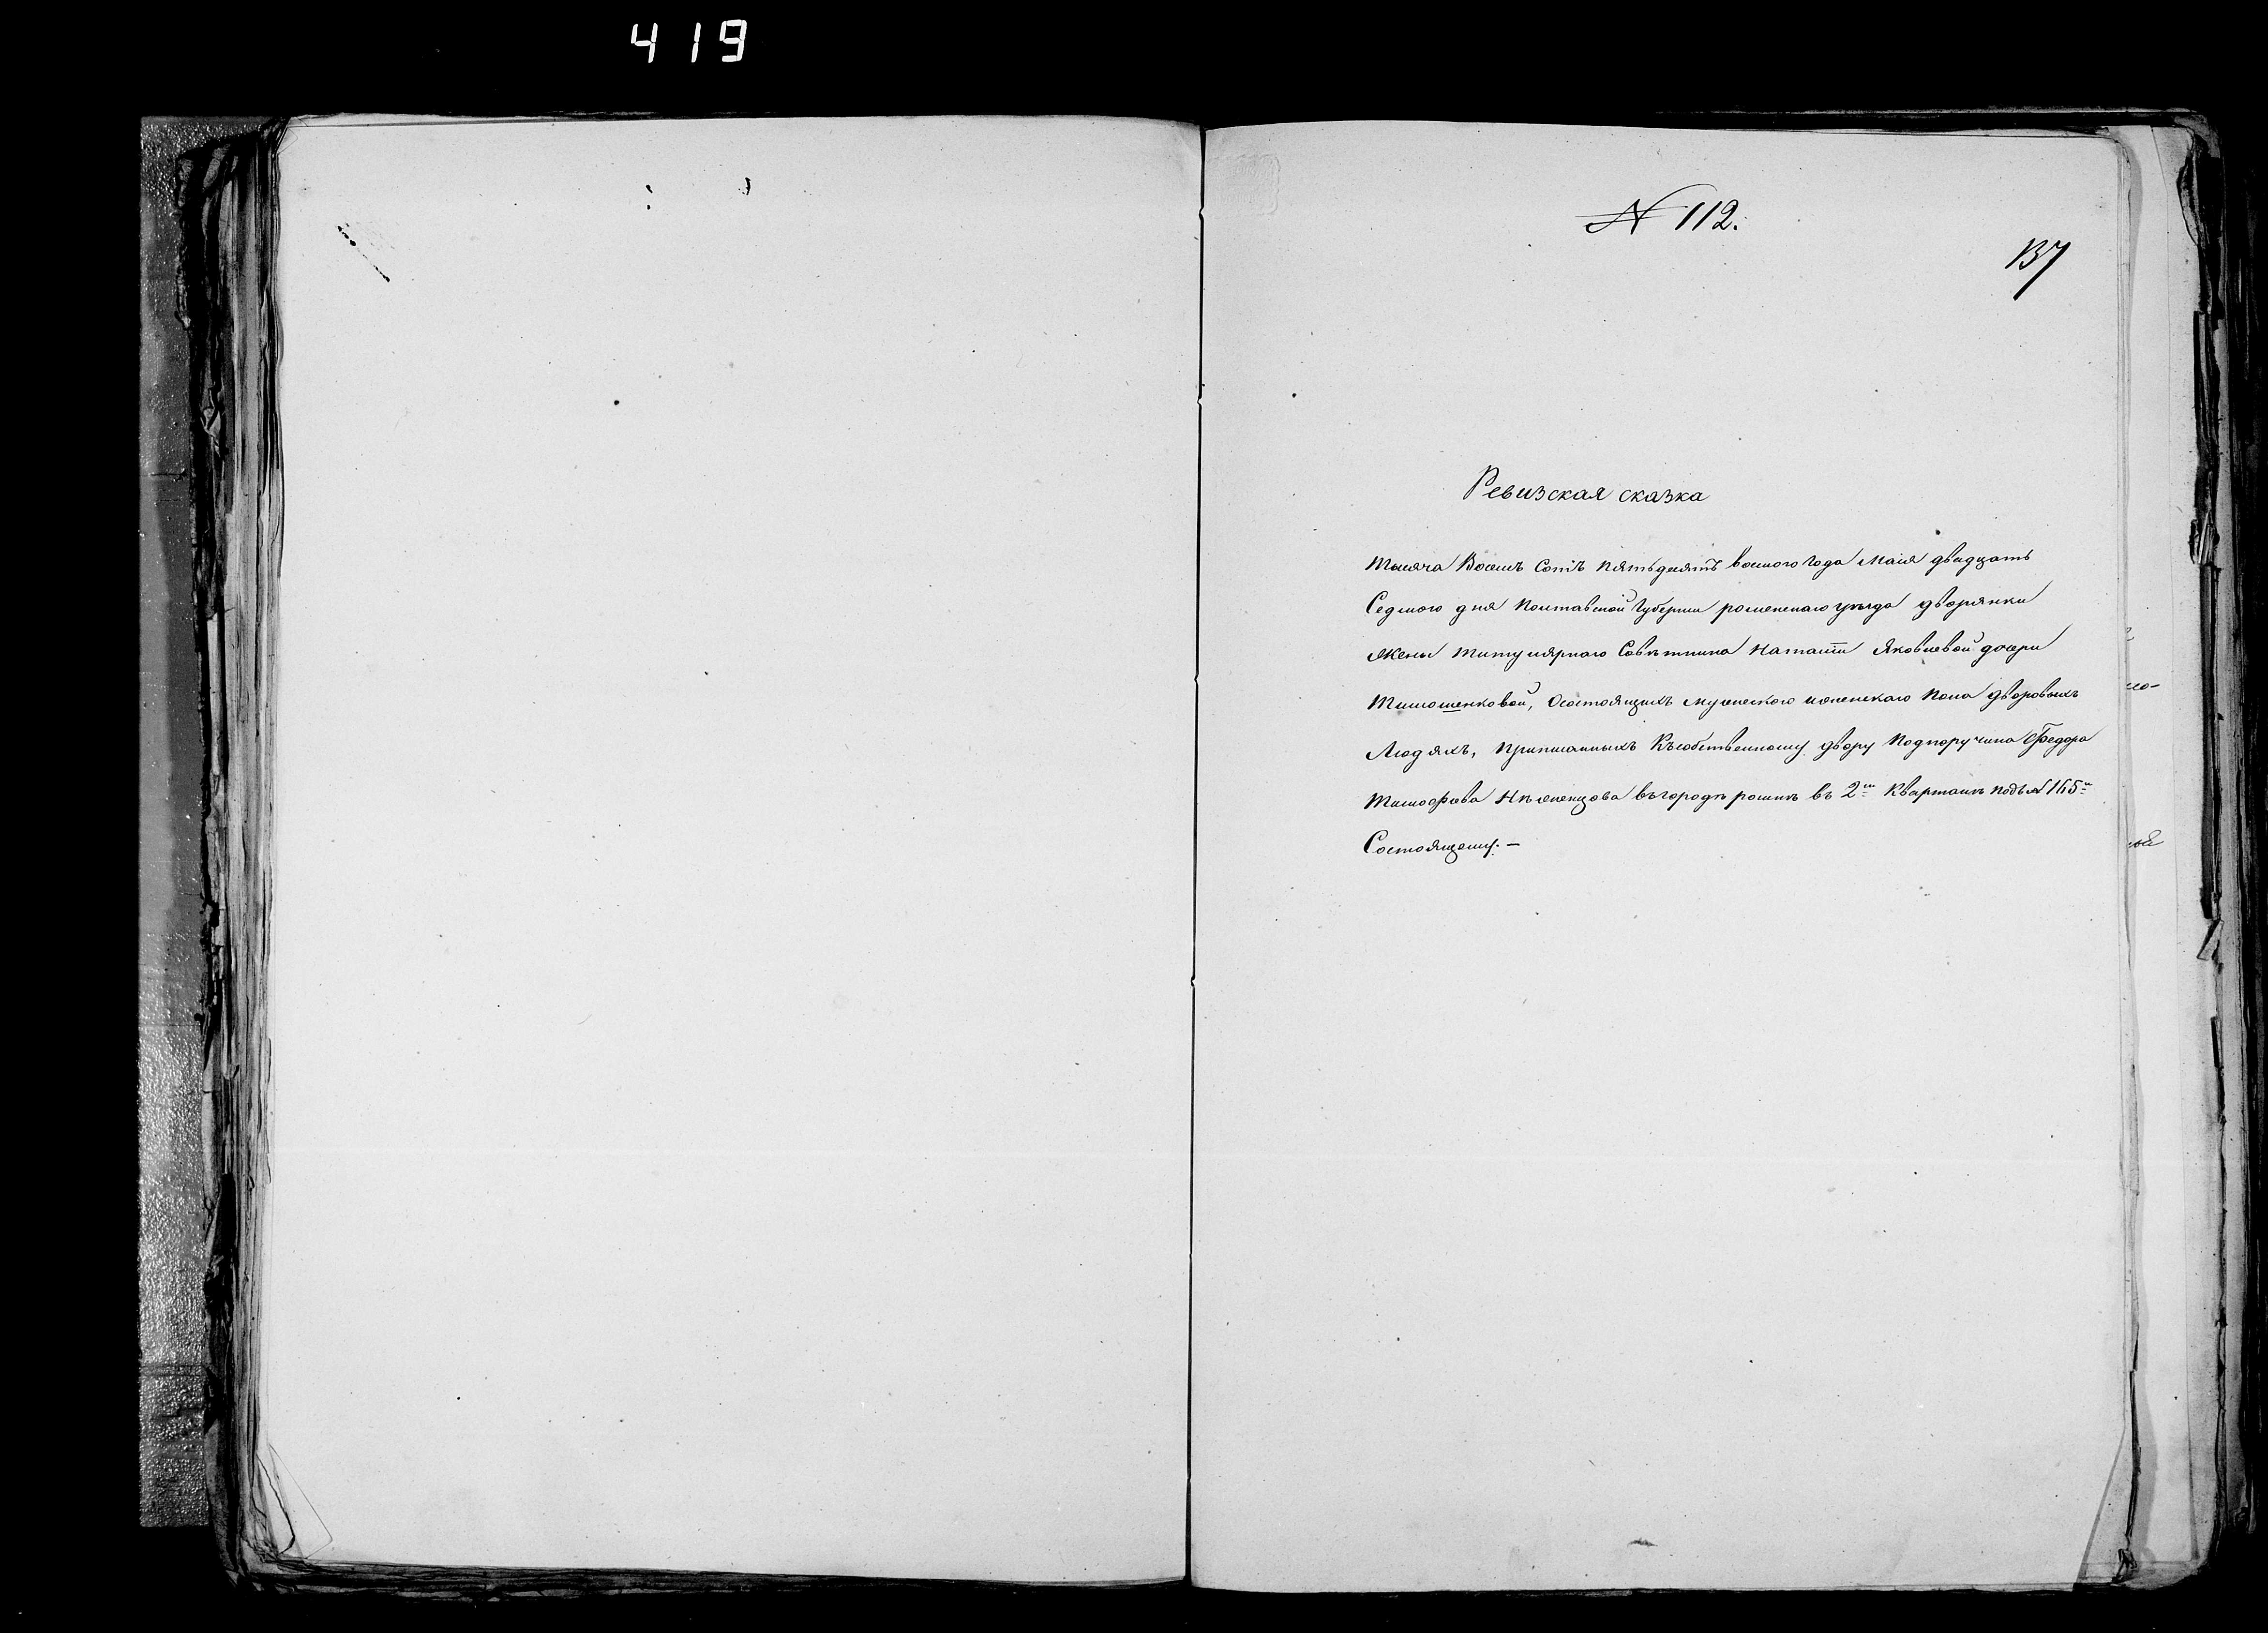 419
№ 112.
137
Ревизская сказка
Тысяча Восемь Сотъ пятьдесятъ восмого года Маія двадцать
Седмого дня Полтавской Губерніи роменскаго уѣзда дворянки
Жены титулярнаго Совѣтника Наталіи Яковлевой дочери
Тимошенковой, Осостоящихъ мужескаго иженскаго пола дворовыхъ
Людяхъ, приписанныхъ Късобственному двору Подпоручика Федора
Тимофѣева въгородѣ ромнѣ въ 2мъ Кварталѣ подъ № 165мъ
Состоящему. —